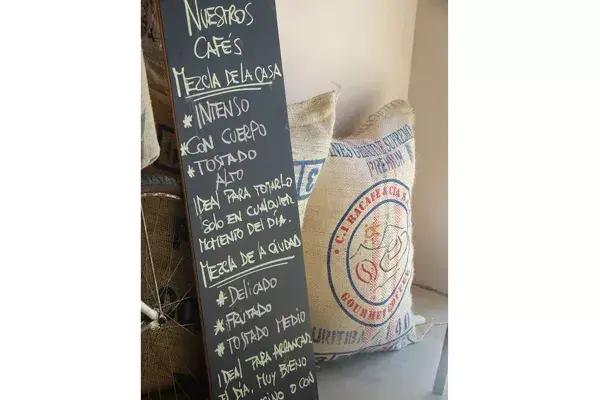 NUESTROS
CAFÉS
MEZCLA DE LA CASA
* INTENSO
* CON CUERPO
* TOSTADO
ALTO
IDEAL PARA TOMARLO
SOLO EN CUALQUIER
MOMENTO DEL DÍA.
MEZCLA DE LA CIUDAD
* DELICADO
* FRUTADO
* TOSTADO MEDIO
IDEAL PARA ARRANCAR
EL DÍA, MUY BUENO
O CON
SUPREMO
PREMIUM
C.I. RACAFE & CIA S.
GOURMET COFFEE
CURITIBA